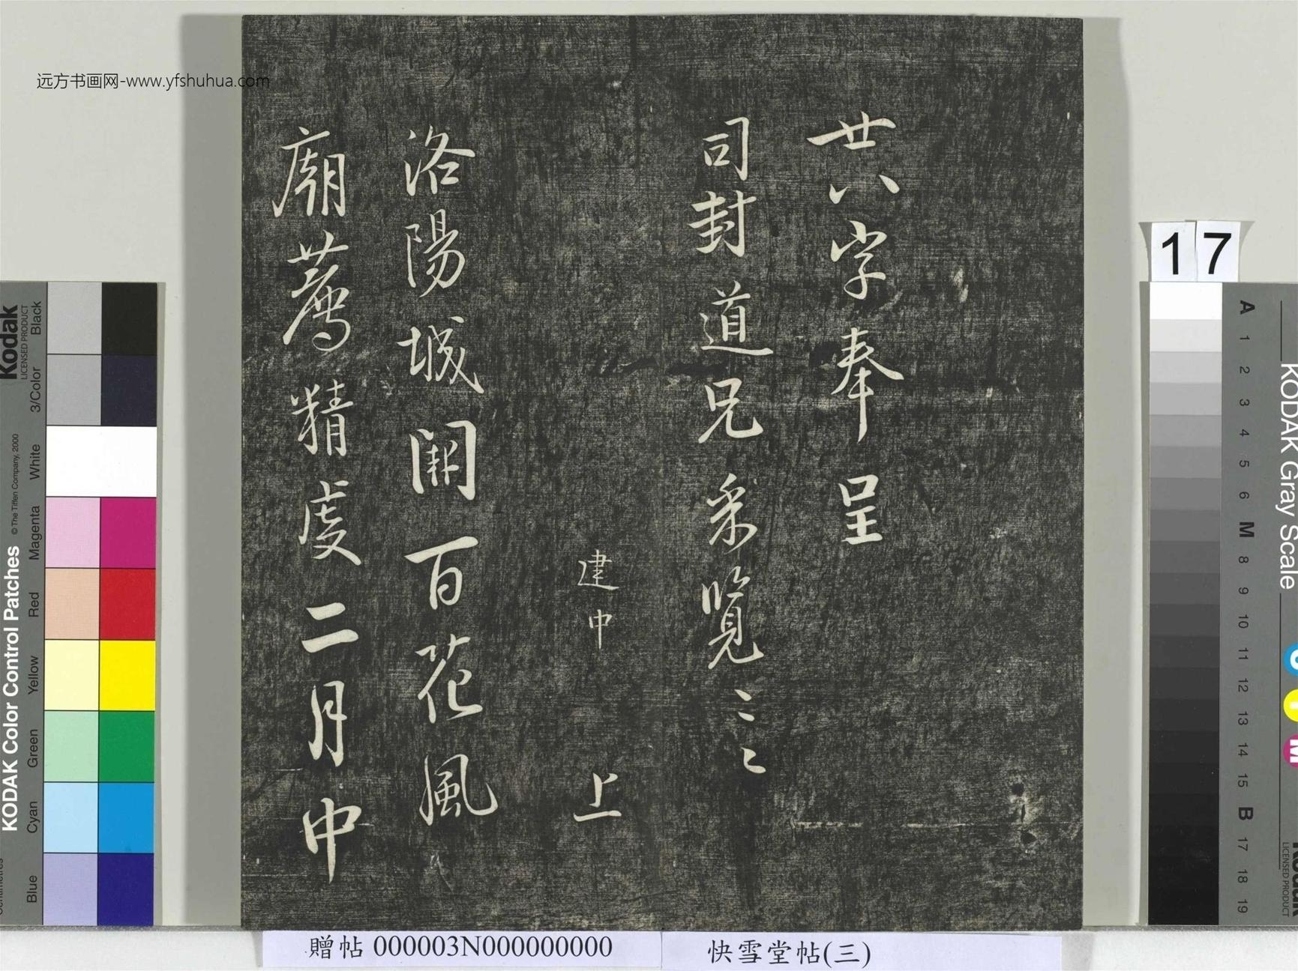 远方书画网-www.yfshuhua.com
廿八字奉呈
司封道兄采覽〻〻
建中 上
洛陽城開百花風
廟薦精虔二月中
17
贈帖 000003N000000000
快雪堂帖(三)
KODAK Color Control Patches
© The Tiffen Company, 2000
Kodak
LICENSED PRODUCT
Black
3/Color
White
Magenta
Red
Yellow
Green
Cyan
Blue
KODAK Gray Scale
A 1 2 3 4 5 6 M 8 9 10 11 12 13 14 15 B 17 18 19